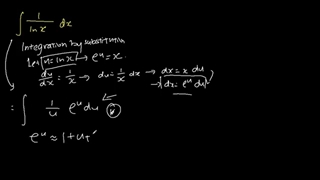 ∫ 1/ln x dx
Integration by substitution
Let u = ln x → e^u = x.
du/dx = 1/x → du = 1/x dx → dx = x du
→ dx = e^u du
= ∫ 1/u e^u du
e^u ≈ 1 + u +